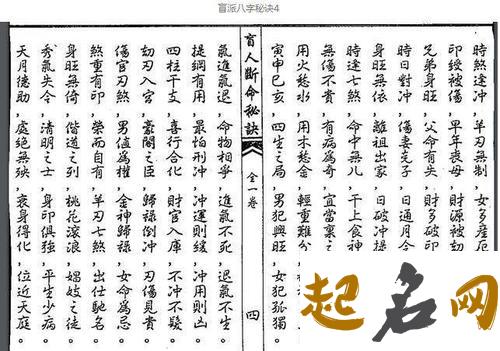 盲派八字秘诀4
時煞逢冲，羊刃無制，女多產厄
印綬被傷，早年喪母，財源被刼
兄弟身旺，父命有失，財多破印
時日對冲，傷妻尅子，日通月令
身旺無依，離祖出家，日破冲提
時逢七煞，命中無兒，干上食神
無傷不貴，有病為奇，宜當
用火愁水，用木愁金，輕重難分
寅申巳亥，四生之局，男犯興旺，女犯孤獨。
盲人斷命秘訣 全一卷 四
氣進氣退，命物相爭，進氣不死，退氣不生。
提綱有用，最怕刑冲，冲運則緩，冲用則凶。
四柱干支，喜行合化，財官入庫，不冲不發。
刼刃入宮，豪閣之臣，歸祿倒冲，刃傷見貴。
傷官刃煞，男值為權，金神歸祿，女命為忌。
煞重有印，榮而自有，羊刃七煞，出仕馳名。
身旺無倚，僧道之列，桃花滾浪，娼妓之徒。
秀氣失令，清明之士，身印俱強，平生少病。
天月德助，處絕無殃，衰身得化，位近天庭。
起名网